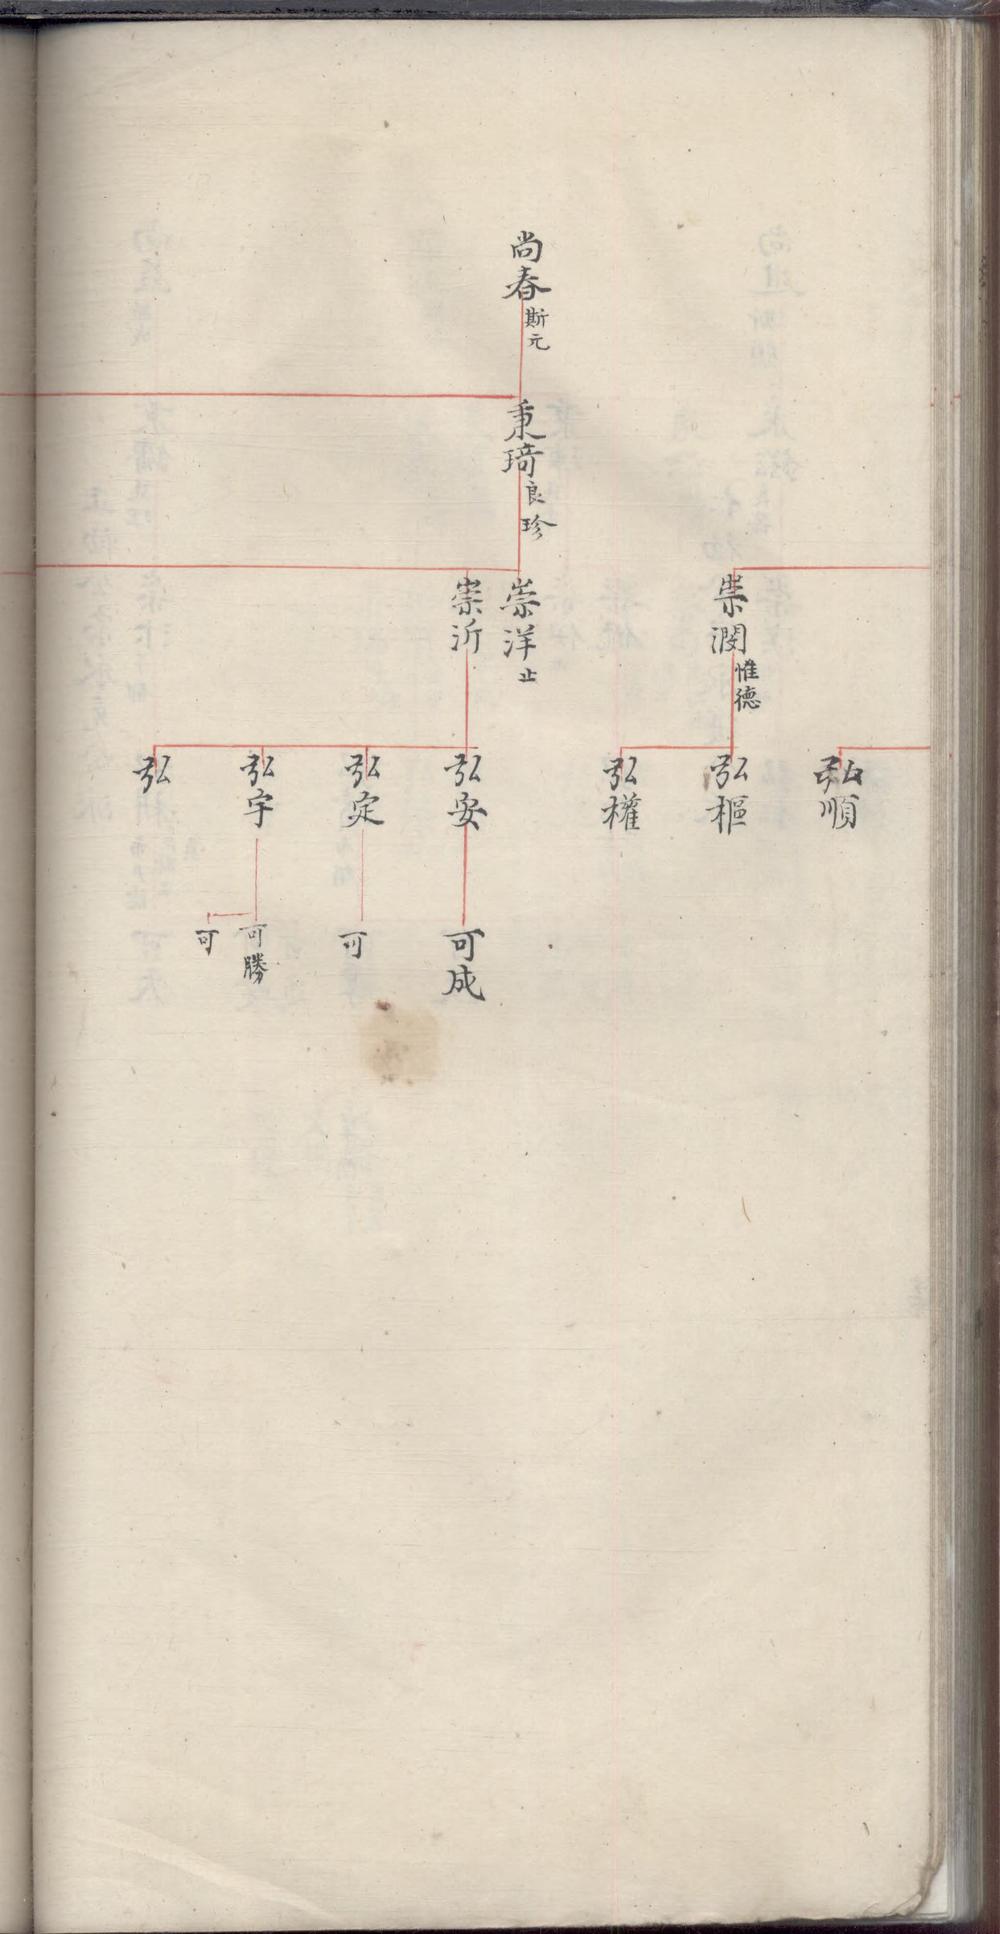 尚春 斯元
秉琦 良珍
崇潤 惟德
崇洋 止
崇沂
弘順
弘樞
弘權
弘安
弘定
弘宇
弘
可成
可
可勝
可